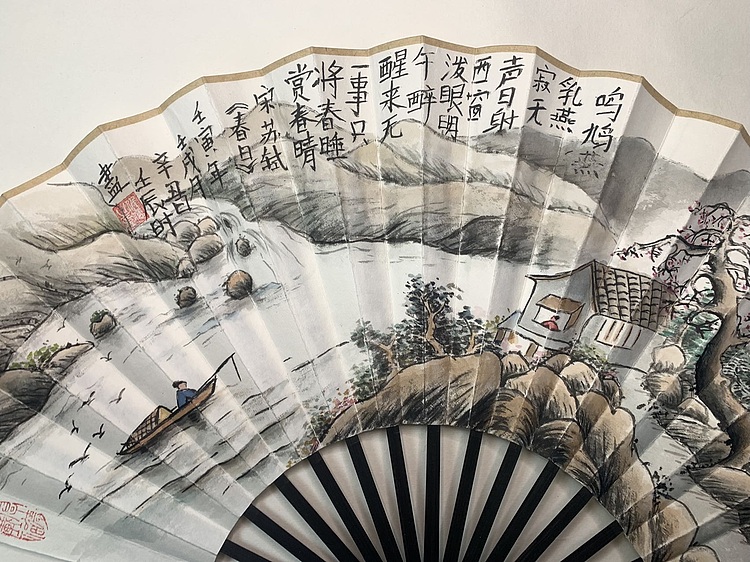 鸣鸠燕
乳燕
寂无
声日射
西窗
泼眼明
午醉
醒来无
一事只
将春睡
赏春晴
宋苏轼
《春日》
壬寅年
壬戌月
辛丑日
壬辰时